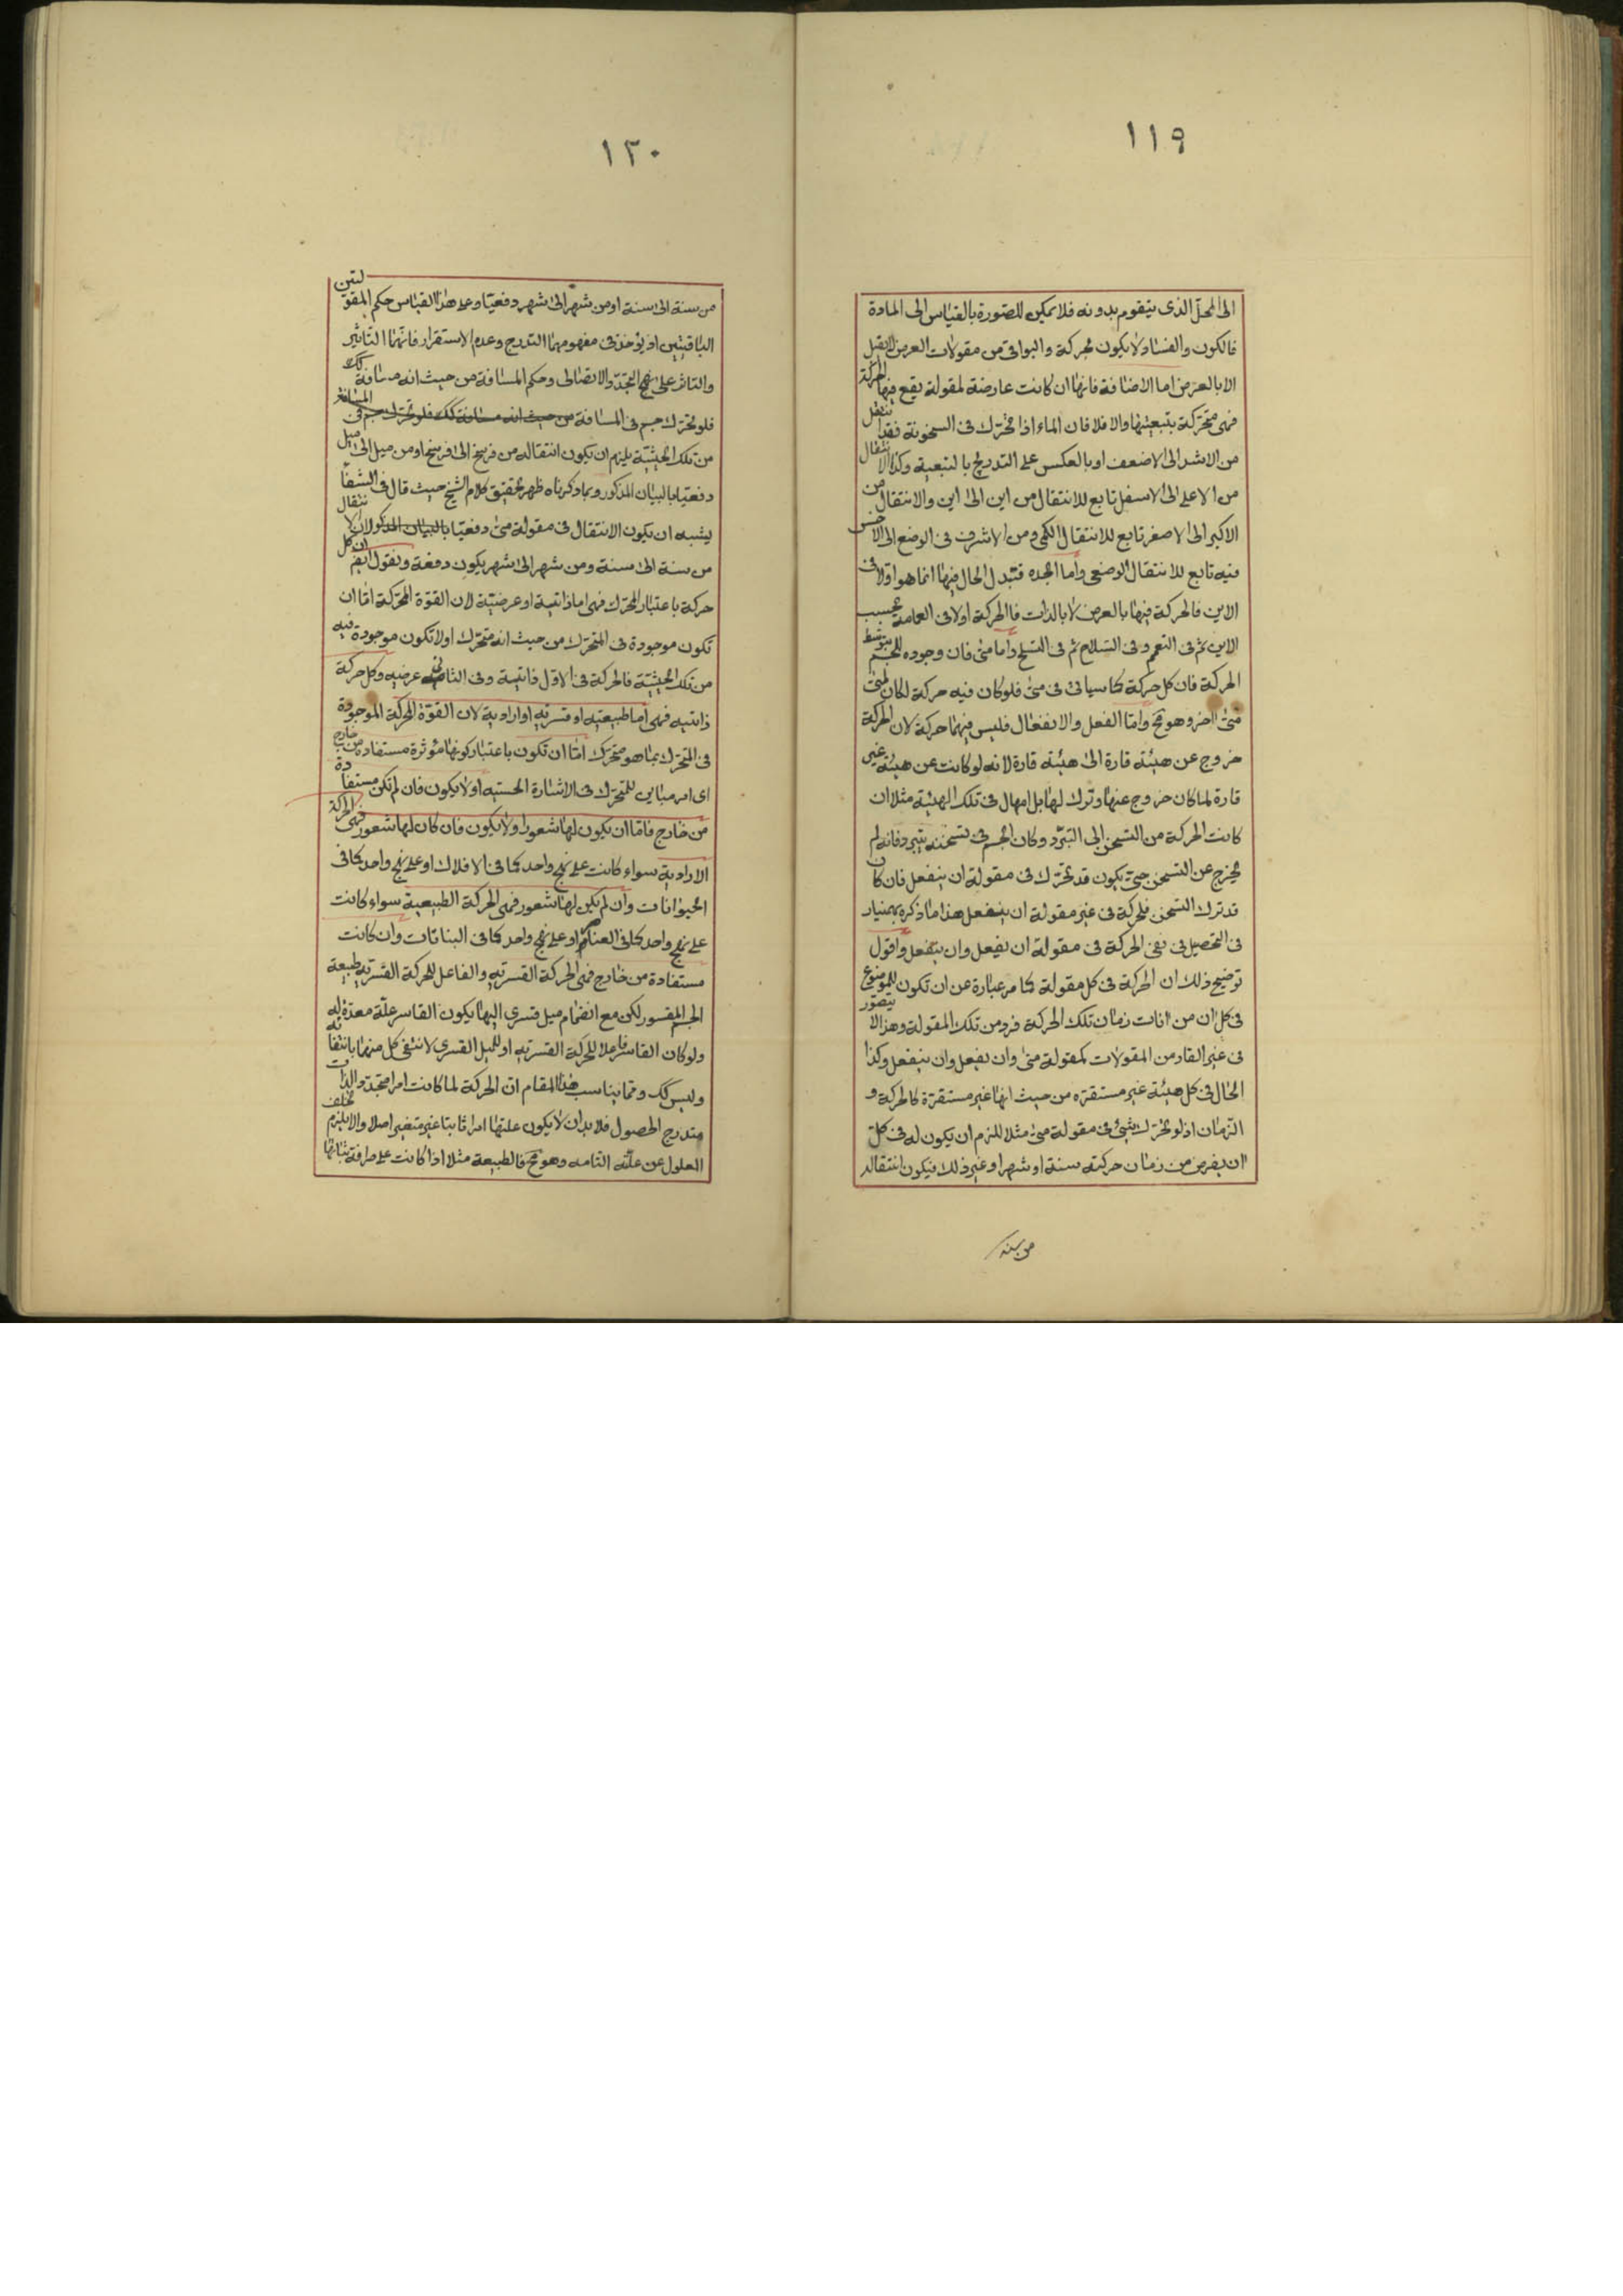 ١١٩
الى المحلّ الذى يتقوم بدونه فلا يمكن للصورة بالقياس الى المادة
فالكون والفساد لا يكون بحركة والبواقى من مقولات العرض لا يقبل
الا بالعرض اما الاضافة فانها ان كانت عارضة لمقولة يقع فيها الحركة
فهى متحركة بتبعيتها والا فلا فان الماء اذا تحرّك فى السخونة فقد انتقل
من الاشد الى الاضعف او بالعكس على التدريج بالتبعية وكذا الانتقال
من الاعلى الى الاسفل تابع للانتقال من اين الى اين والانتقال من
الاكبر الى الاصغر تابع للانتقال الكمى ومن الاشرف فى الوضع الى الاخس
فيه تابع للانتقال الوضعى واما الجده فتبدل الحال فيها انما هو اولا فى
الاين فالحركة فيها بالعرض لا بالذات فالحركة اولا فى العامة بحسب
الاين ثم فى التعمم وفى السلاح ثم فى التسلح واما متى فان وجوده للجسم بتوسط
الحركة فان كل حركة كما سياتى فى متى فلو كان فيه حركة لكان لمتى
متى اخر وهو مح وامّا الفعل والانفعال فليس فيهما حركة لان الحركة
خروج عن هيئة قارة الى هيئة قارة لانه لو كانت عن هيئة غير
قارة لما كان خروج عنها وترك لها بل امهال فى تلك الهيئة مثلا ان
كانت الحركة من التسخن الى التبرّد وكان الجسم فى تسخنه يتبرد فانه لم
يخرج عن التسخن حتى يكون قد تحرّك فى مقولة ان ينفعل فان كان
قد ترك التسخن فالحركة فى غير مقولة ان ينفعل هذا ما ذكره بهمنيار
فى التحصيل فى نفى الحركة فى مقولة ان يفعل وان ينفعل واقول
توضيح ذلك ان الحركة فى كل مقولة كما مر عبارة عن ان تكون للموضوع
فى كل ان من انات زمان تلك الحركة فرد من تلك المقولة وهذا لا يتصور
فى غير القار من المقولات كمقولة متى وان يفعل وان ينفعل وكذا
الحال فى كل هيئة غير مستقره من حيث انها غير مستقرّة كالحركة و
الزمان اذ لو تحرّك شئ فى مقولة متى مثلا للزم ان يكون له فى كل
ان يفرض من زمان حركته سنة او شهر او غير ذلك فيكون انتقاله
من سنة
١٢٠
من سنة الى سنة او من شهر الى شهر دفعيّا وعلى هذا القياس حكم المقولتين
الباقيتين اذ يؤخذ فى مفهوميهما التدرج وعدم الاستقرار فانهما التاثير
والتاثر على نهج التجدّد والاتصال وحكم المسافة من حيث انه مسافة كك
فلو تحرّك جسم فى المسافة من حيث انه مسافة كك فلو تحرك جسم فى المسافة
من تلك الحيثيّة يلزم ان يكون انتقاله من فرسخ الى فرسخ او من ميل الى ميل
دفعيّا بالبيان المذكور وبما ذكرناه ظهر تحقيق كلام الشيخ حيث قال فى الشفا
يشبه ان يكون الانتقال فى مقولة متى دفعيّا بالبيان المذكور لان الانتقال
من سنة الى سنة ومن شهر الى شهر يكون دفعة ونقول ايضً ان كل
حركة باعتبار المحرّك فهى اما ذاتية او عرضيّة لان القوّة المحركة امّا ان
تكون موجودة فى المتحرّك من حيث انه متحرّك اولا تكون موجودة فيه
من تلك الحيثيّة فالحركة فى الاوّل ذاتية وفى الثانى عرضيه وكل حركة
ذاتيه فهى اما طبيعيّه او قسريّه او اراديه لان القوّة المحركة الموجودة
فى المتحرّك بما هو متحرّك امّا ان تكون باعتبار كونها مؤثرة مستفادة من خارج
اى امر مباين للمتحرّك فى الاشارة الحسيّه اولا يكون فان لم تكن مستفادة
من خارج فامّا ان يكون لها شعور اولا يكون فان كان لها شعور فهى الحركة
الاراديه سواء كانت على نهج واحد كما فى الافلاك او على نهج واحد كما فى
الحيوانات وان لم يكن لها شعور فهى الحركة الطبيعية سواء كانت
على نهج واحد كما فى العناصر او على نهج واحد كما فى النباتات وان كانت
مستفادة من خارج فهى الحركة القسريّه والفاعل للحركة القسريّه طبيعة
الجسم المقسور لكن مع انضمام ميل قسرى اليها يكون القاسر علّة معدّة له
ولو كان القاسر فاعلا للحركة القسريّه او للميل القسرى لانتفى كل منهما بانتفائه
وليس كك ومما يناسب هذا المقام ان الحركة لما كانت امرا متجدّد الذات
متدرج الحصول فلا بد ان لا يكون علتها امرا ثابتا غير متغير اصلا والا يلزم تخلف
المعلول عن علّته التامه وهو مح فالطبيعة مثلا اذا كانت على صرافة ثباتها